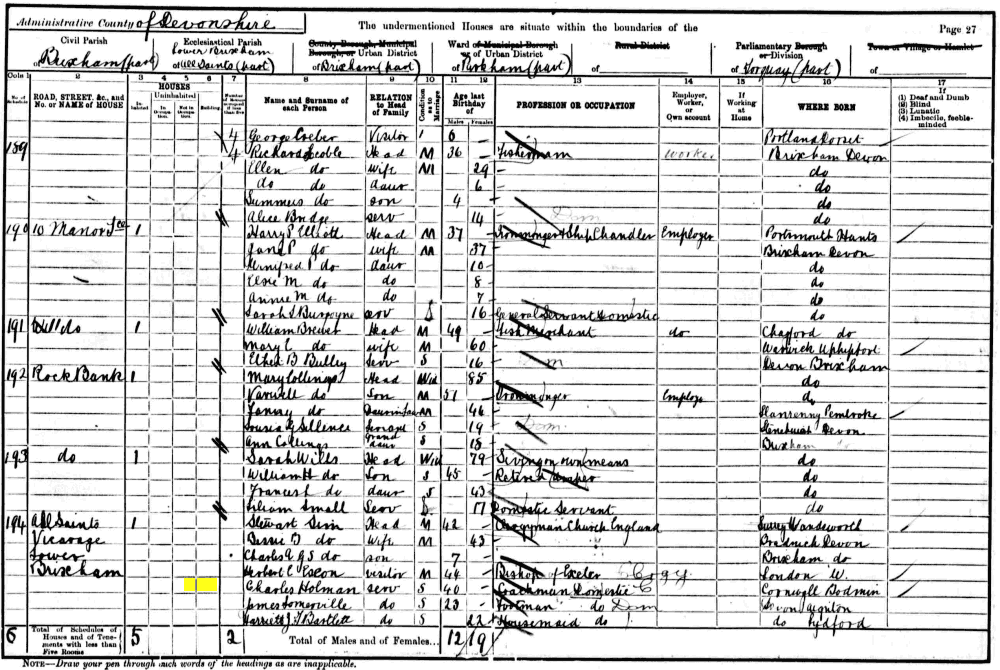 Administrative County of Devonshire
The undermentioned Houses are situate within the boundaries of the
Page 27
Civil Parish of Brixham (part)
Ecclesiastical Parish of Lower Brixham All Saints (part)
County Borough, Municipal Borough, or Urban District of Brixham (part)
Ward of Municipal Borough or of Urban District of (part)
Rural District of
Parliamentary Borough or Division of Torquay (part)
Town or Village or Hamlet of
Cols 1 2 3 4 5 6 7 8 9 10 11 12 13 14 15 16 17
No. of Schedule
ROAD, STREET, &c., and No. or NAME of HOUSE
HOUSES
Inhabited
Uninhabited
In Occupation
Not in Occupation
Building
Number of Rooms occupied if less than five
Name and Surname of each Person
RELATION to Head of Family
Condition as to Marriage
Age last Birthday of
Males Females
PROFESSION OR OCCUPATION
Employer, Worker, or Own account
If Working at Home
WHERE BORN
If
(1) Deaf and Dumb
(2) Blind
(3) Lunatic
(4) Imbecile, feeble-minded
4 George Visitor 6 Portland Dorset
189 4 Richard Head M 36 Fisherman worker Brixham Devon
Ellen do wife M 29 do
do do daur 6 do
Summers do son 4 do
Alice Bridge serv 14 do
190 10 Manor Tce 1 Harry S Elliott Head M 37 Ironmonger & Ship Chandler Employer Portsmouth Hants
Jane P do wife M 37 Brixham Devon
Winifred do daur 10 do
Elsie M do do 8 do
Annie M do do 7 do
Sarah Burgoyne serv S 16 General Servant Domestic do
191 do 1 William Head M 49 Fish Merchant do Chagford do
Mary E do wife M 60 Warwick
Ethel B Bulley Serv S 16 Devon Brixham
192 Rock Bank 1 Mary Collings Head Wid 85 do
Varwell do Son M 51 Ironmonger Employer do
Fanny do Daur in law M 46 Pembroke
19 Devon
Ann Collings Grand daur S 18 Brixham
193 do 1 Sarah Wills Head Wid 79 Living on own means do
William H do Son S 45 Retired draper do
Frances do daur S 43 do
Lilian Small Serv S 17 Domestic Servant do
194 All Saints 1 Stewart Sim Head M 42 Clergyman Church England Surrey Wandsworth
Vicarage Bessie do Wife M 43 Devon
Lower Charles do son 7 Brixham do
Brixham Herbert E visitor M 44 Bishop of Exeter Clergy London W.
Charles Holman serv S 40 Coachman Domestic Cornwall Bodmin
James Somerville do S 23 Footman do Dom Devon
Harriett J Bartlett do S 22 Housemaid do do Lydford
6 Total of Schedules of Houses and of Tenements with less than Five Rooms 5 2 Total of Males and of Females... 12 19
NOTE—Draw your pen through such words of the headings as are inapplicable.